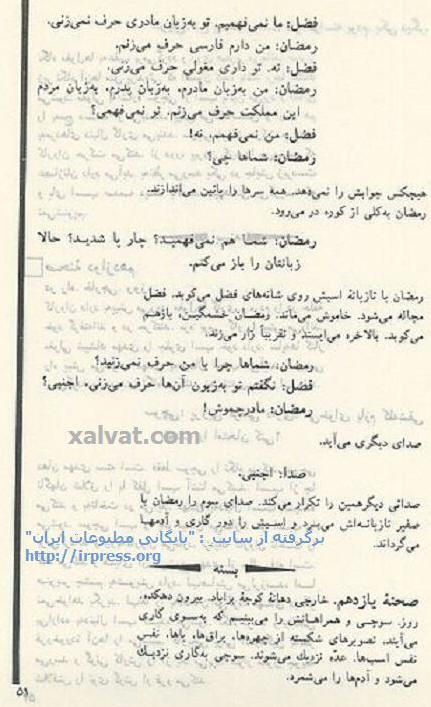 فضل: ما نمی‌فهمیم. تو به‌زبان مادری حرف نمی‌زنی.
رمضان: من دارم فارسی حرف می‌زنم.
فضل: نه. تو داری مغولی حرف می‌زنی.
رمضان: من به‌زبان مادرم، به‌زبان پدرم، به‌زبان مردم
این مملکت حرف می‌زنم. تو نمی‌فهمی؟
فضل: من نمی‌فهمم، نه!
رمضان: شماها چی؟
هیچکس جوابش را نمی‌دهد. همه سرها را پائین می‌اندازند.
رمضان به‌کلی از کوره در می‌رود.
رمضان: شما هم نمی‌فهمید؟ چار پا شدید؟ حالا
زبانتان را باز می‌کنم.
رمضان با تازیانهٔ اسبش روی شانه‌های فضل می‌کوبد. فضل
مچاله می‌شود. خاموش می‌ماند. رمضان خشمگین، بازهم
می‌کوبد. بالاخره می‌ایستد و تقریباً زار می‌زند.
رمضان: شماها چرا با من حرف نمی‌زنید؟
فضل: نگفتم تو به‌زبون آن‌ها حرف می‌زنی، اجنبی؟
رمضان: مادرچموش!
xalvat.com
صدای دیگری می‌آید.
صدا: اجنبی.
صدائی دیگر همین را تکرار می‌کند. صدای سوم را رمضان با
صفیر تازیانه‌اش می‌برد و اسبش را دور گاری و آدمها
می‌گرداند.
برگرفته از سایت : "بایگانی مطبوعات ایران"
http://irpress.org
بسته
صحنهٔ یازدهم. خارجی دهانهٔ کوچهٔ پرآباد. بیرون دهکده.
روز. سوجی و همراهانش را می‌بینیم که به‌سوی گاری
می‌آیند. تصویرهای شکسته از چهره‌ها، یراق‌ها، پاها، نفس
نفس اسب‌ها. عدّه نزدیك می‌شوند. سوجی به‌گاری نزدیك
می‌شود و آدم‌ها را می‌شمرد.
۵۱